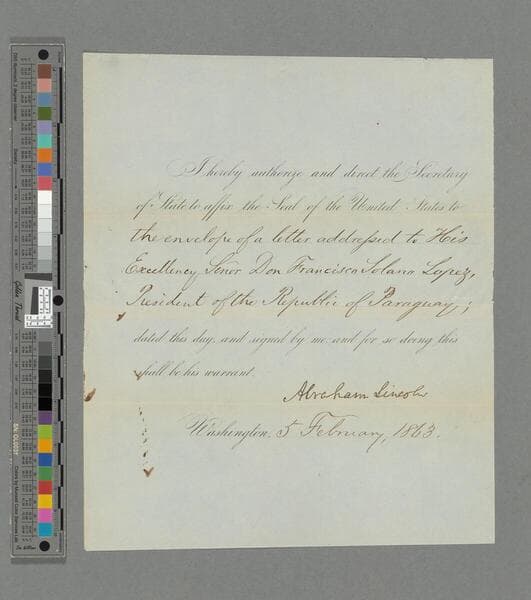 I hereby authorize and direct the Secretary
of State to affix the Seal of the United States to
the envelope of a letter addressed to His
Excellency Señor Don Francisco Solano Lopez,
President of the Republic of Paraguay;
dated this day, and signed by me: and for so doing this
shall be his warrant.
Abraham Lincoln
Washington, 5 February, 1863.
Golden Thread